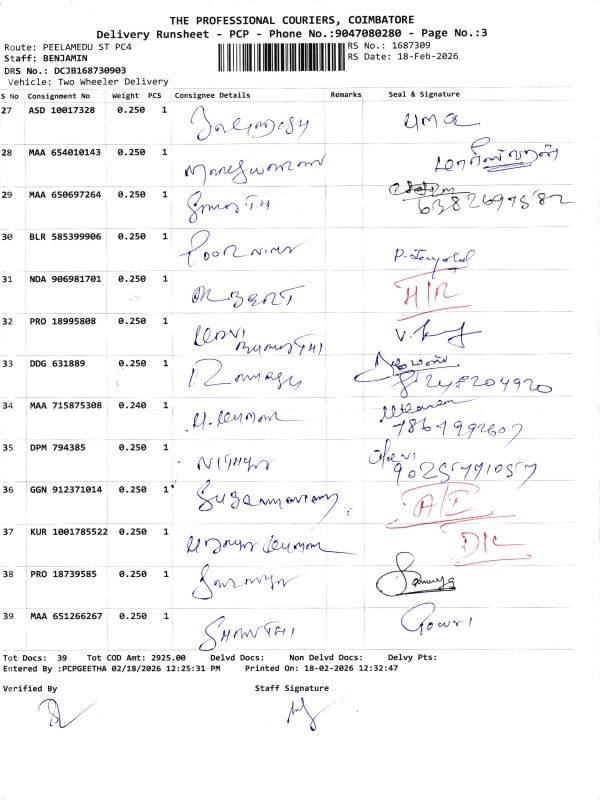 THE PROFESSIONAL COURIERS, COIMBATORE
Delivery Runsheet - PCP - Phone No.:9047080280 - Page No.:3
Route: PEELAMEDU ST PC4 RS No.: 1687309
Staff: BENJAMIN RS Date: 18-Feb-2026
DRS No.: DCJB168730903
Vehicle: Two Wheeler Delivery
S No Consignment No Weight PCS Consignee Details Remarks Seal & Signature
27 ASD 10017328 0.250 1 UMA
28 MAA 654010143 0.250 1
29 MAA 650697264 0.250 1
6382697582
30 BLR 585399906 0.250 1 POORNIMA
31 NDA 906981701 0.250 1 H/R
32 PRO 18995808 0.250 1
33 DDG 631889 0.250 1
8248204920
34 MAA 715875308 0.240 1
35 DPM 794385 0.250 1 NITHYA
36 GGN 912371014 0.250 1 A/I
37 KUR 1001785522 0.250 1 D/C
38 PRO 18739585 0.250 1 Saranya
39 MAA 651266267 0.250 1 SHANTHI Gowri
Tot Docs: 39 Tot COD Amt: 2925.00 Delvd Docs: Non Delvd Docs: Delvy Pts:
Entered By :PCPGEETHA 02/18/2026 12:25:31 PM Printed On: 18-02-2026 12:32:47
Verified By Staff Signature